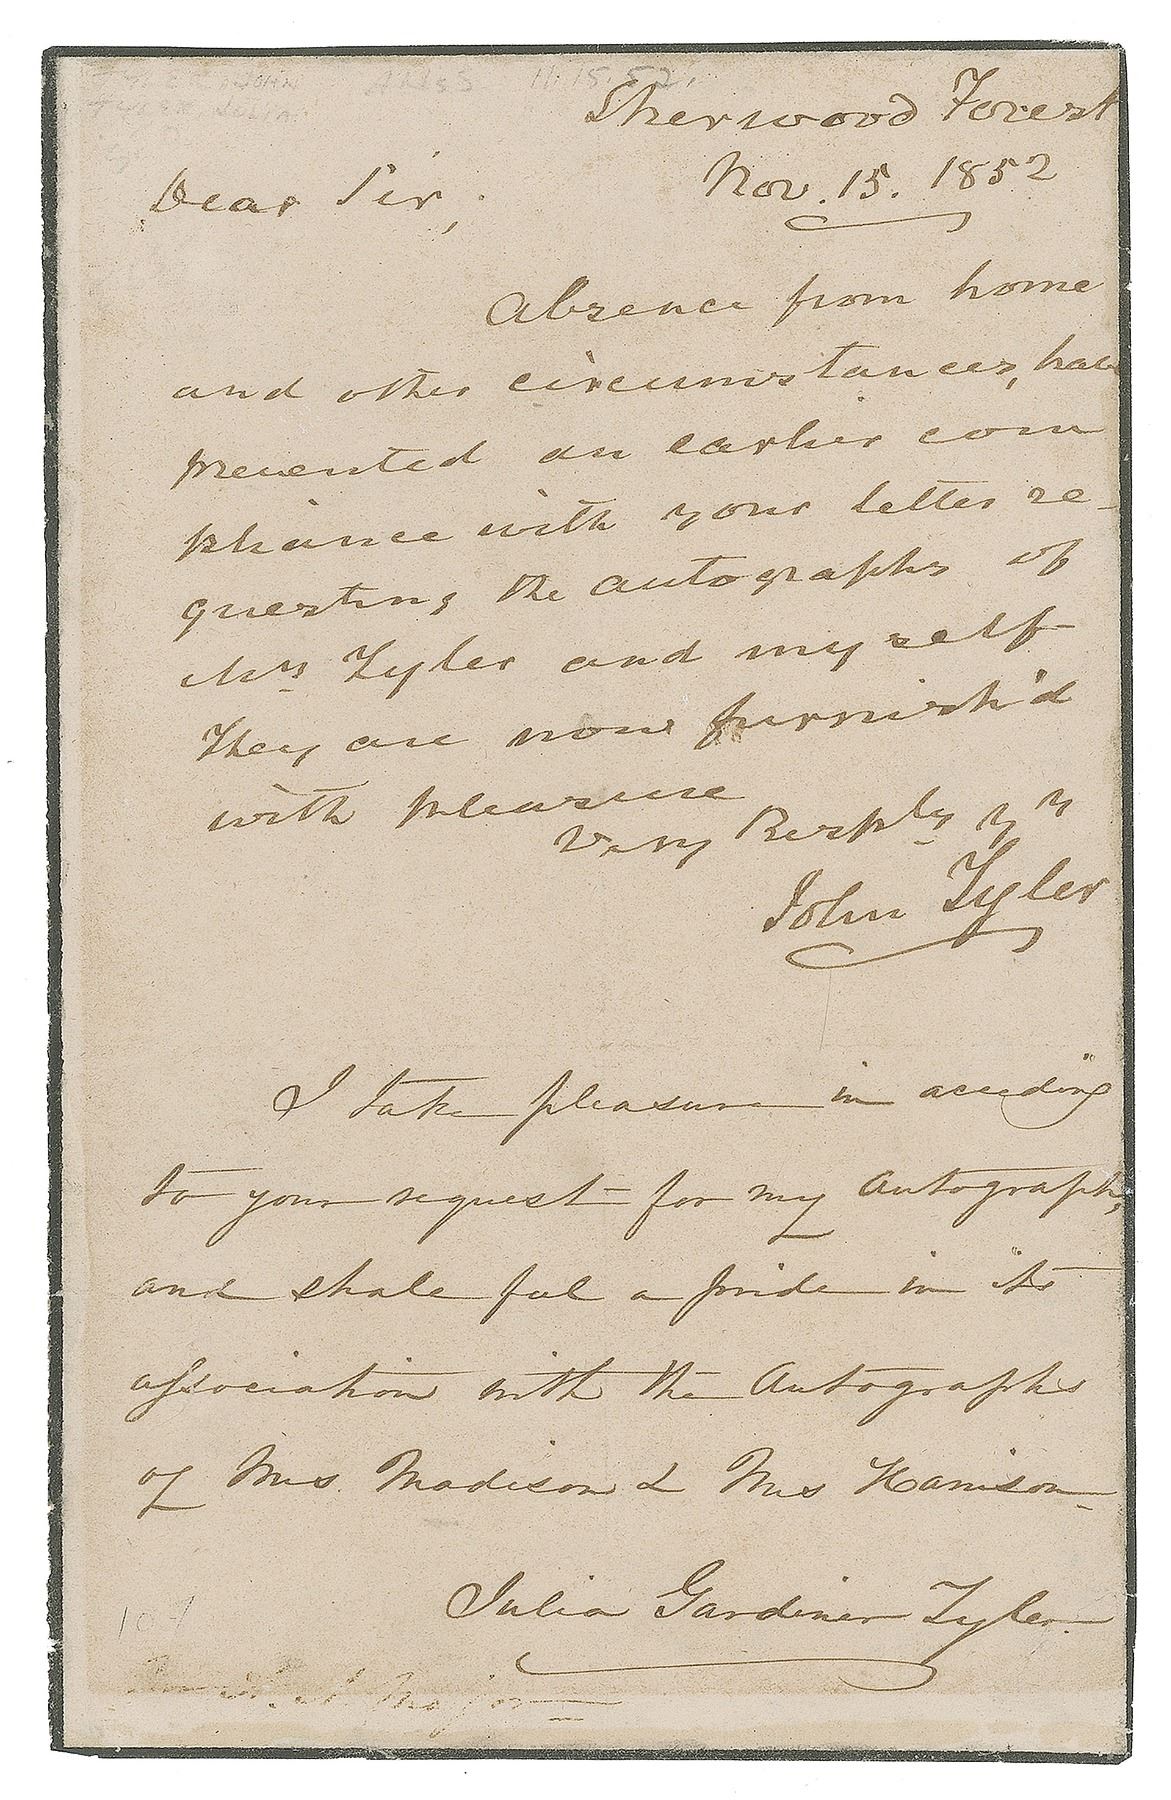 TYLER JOHN ALSS 11.15.52.
TYLER JULIA
Sherwood Forest
Nov. 15. 1852
Dear Sir;
Absence from home
and other circumstances, have
prevented an earlier com
pliance with your letter re-
questing the autographs of
Mrs Tyler and myself
They are now furnish'd
with pleasure
Very Resply yr
John Tyler
I take pleasure in acceding
to your request for my Autograph,
and shall feel a pride in its
association with the Autographs
of Mrs. Madison & Mrs Harrison_
Julia Gardiner Tyler.
107
Major